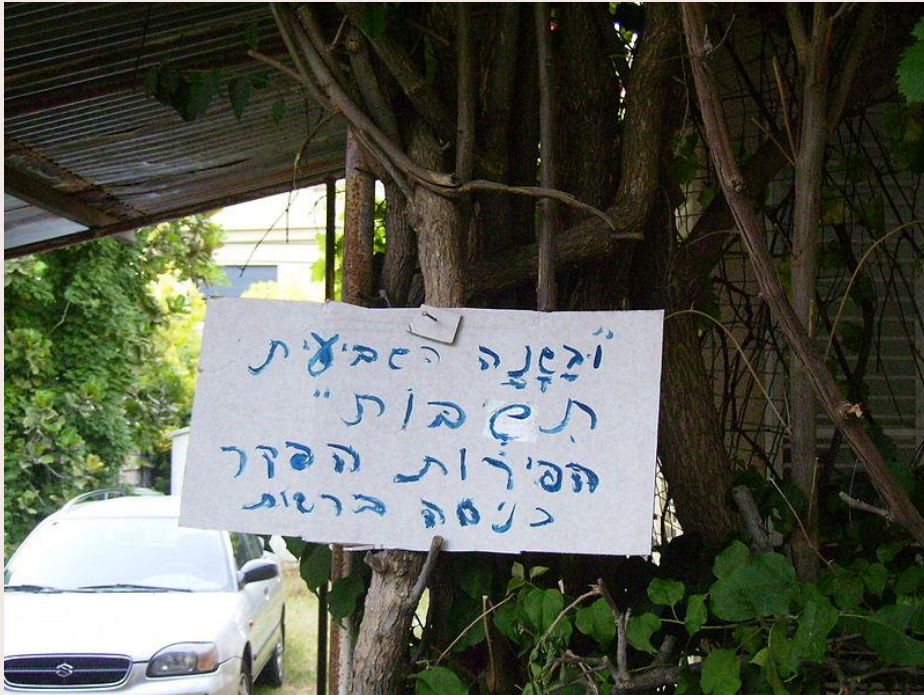 "ובַשָנָה השביעית
תִשָבות"
הפירות הפקר
כניסה ברשות